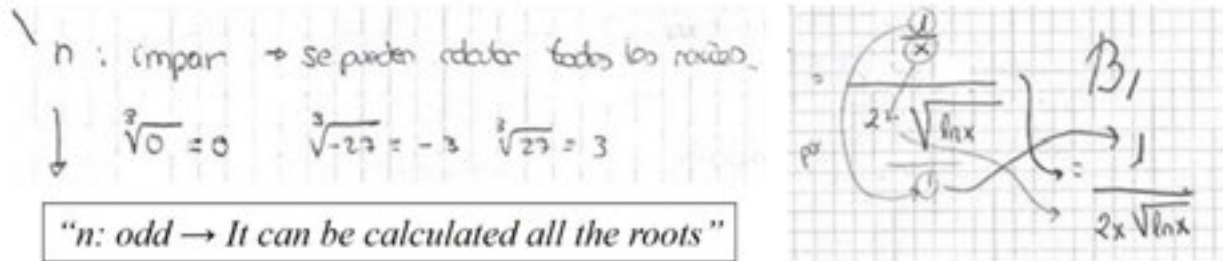 n : impar → se pueden calcular todas las raíces.
∛0 = 0 ∛-27 = -3 ∛27 = 3
"n: odd → It can be calculated all the roots"
1
x
2 √lnx
1
B1
= 1
2x √lnx